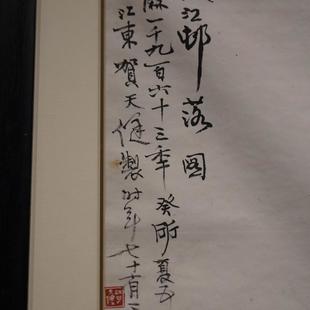 江邨落图
麻一千九百六十三年癸卯夏五
江東賀天健製时年七十有三